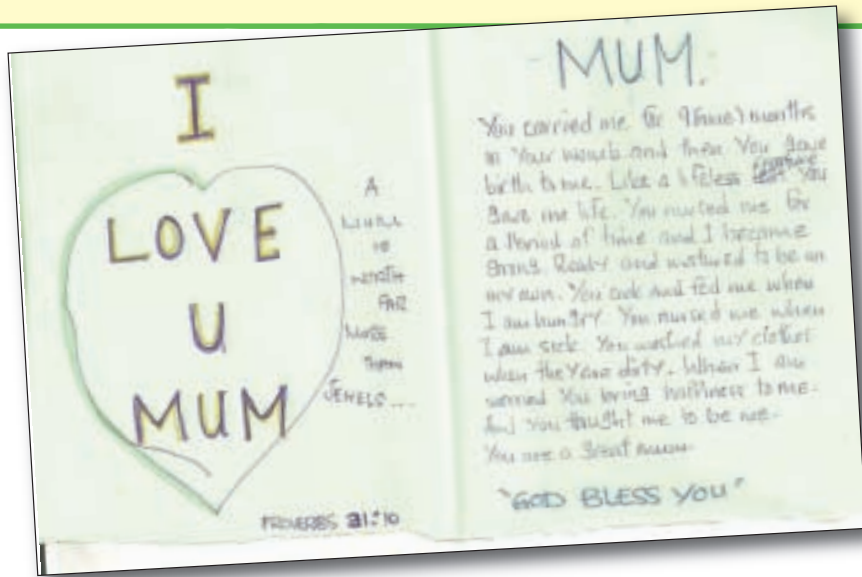 I
LOVE
U
MUM
A
MUM
IS
WORTH
FAR
MORE
THAN
JEWELS....
PROVERBS 31:10
MUM.
You carried me for 9(nine) months
in Your womb and then You gave
birth to me. Like a lifeless creature You
gave me life. You nursed me for
a Period of time and I become
Strong. Ready and nurtured to be on
my own. You cook and fed me when
I am hungry. You nursed me when
I am sick. You washed my clothes
when they are dirty. When I am
worried You bring happiness to me.
And You taught me to be me.
You are a great mum.
"GOD BLESS YOU"